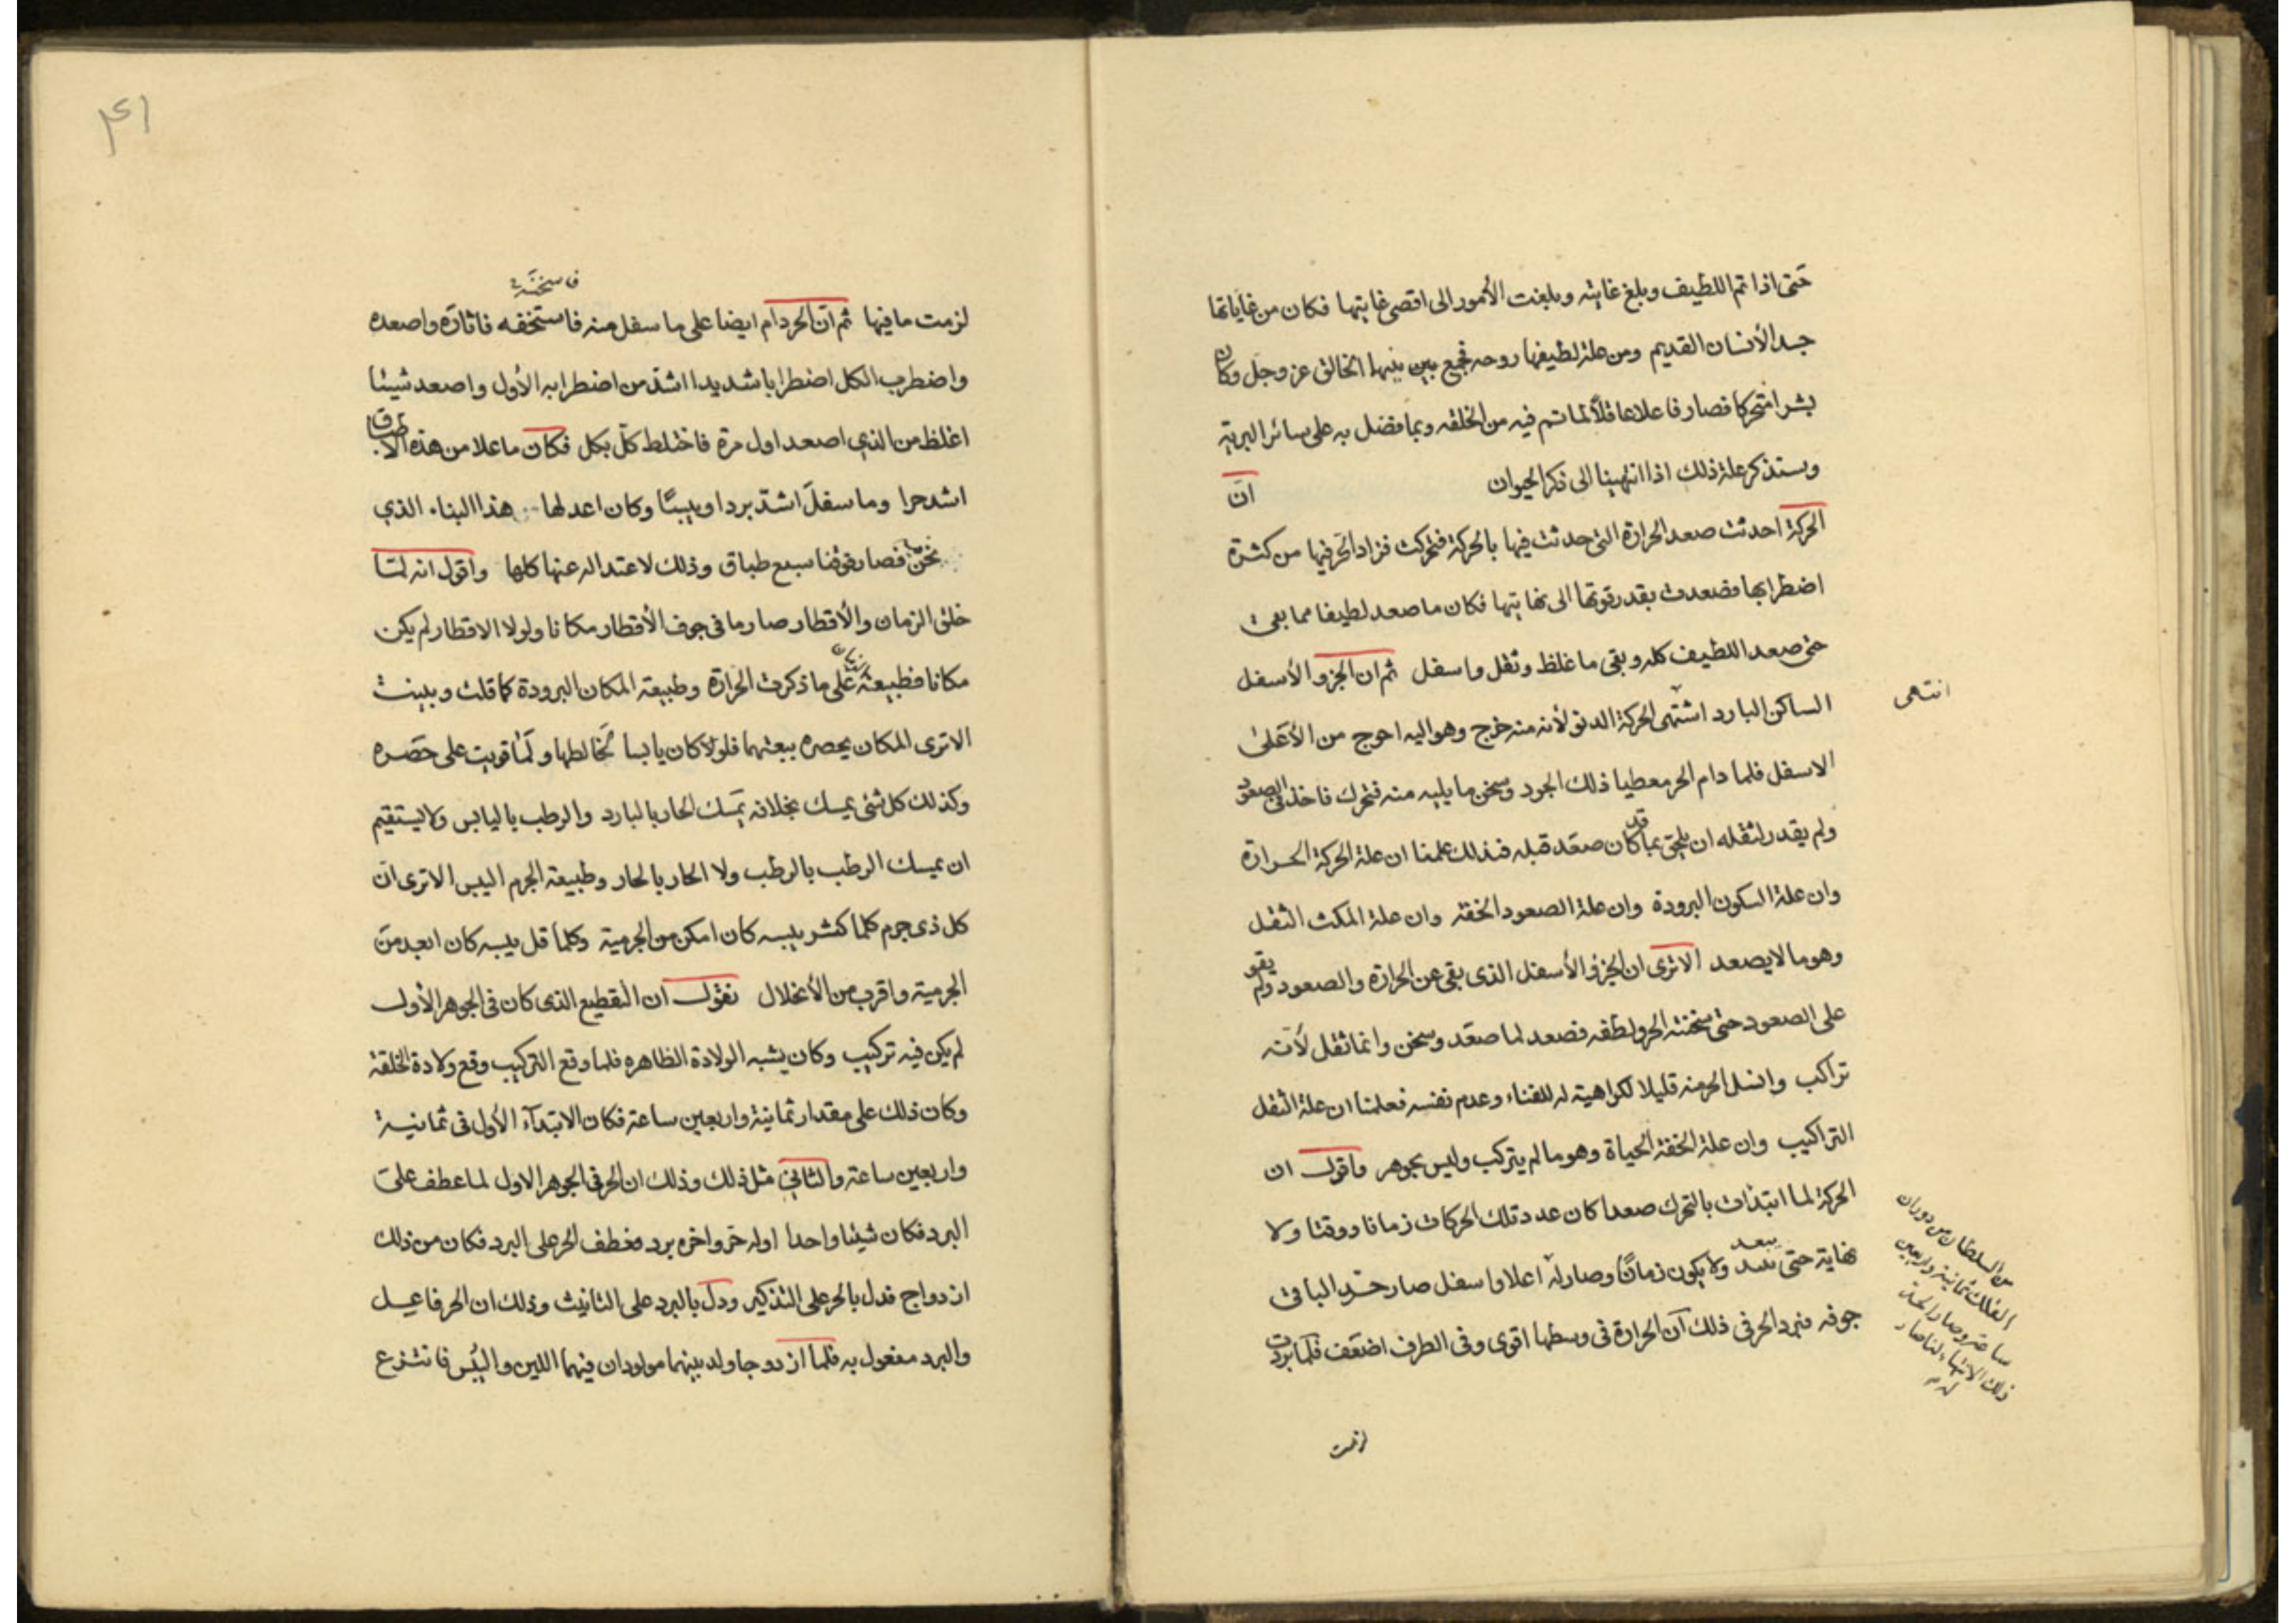 حتى اذا تم اللطيف وبلغ غايته وبلغت الأمور الى اقصى غايتها فكان من غاياتها
جسد الأنسان القديم ومن علة لطيفها روحه فجمع بين بينهما الخالق عز وجل وكان
بشرا متحركا فصار فاعلا عاقلاً لما تم فيه من الخلقه وبما فضل به على سائر البرية
وسنذكر علة ذلك اذا انتهينا الى ذكر الحيوان انّ
الحركة احدثت صعد الحرارة التى حدثت فيها بالحركة فتحركت فزاد الحر فيها من كثرة
اضطرابها فصعدت بقدر قوتها الى نهايتها فكان ما صعد لطيفا مما بقى
حتى صعد اللطيف كله وبقى ما غلظ وثقل واسفل ثم ان الجزو الأسفل
الساكن البارد اشتهى الحركة الدنو لأنه منه خرج وهو اليه احوج من الأعلى
انتهى
الاسفل فلما دام الحر معطيا ذلك الجرد وسخن ما يليه منه فتحرك فاخذ فى الصعود
ولم يقدر لثقله ان يلحق بما قد كان صعد قبله فذلك علمنا ان علة الحركة الحرارة
وان علة السكون البرودة وان علة الصعود الخفة وان علة المكث الثقل
وهو ما لا يصعد الا ترى ان الجزؤ الأسفل الذى بقى عن الحرارة والصعود ولم يقو
على الصعود حتى سخنته الحر ولطفه فصعد لما صعد وسخن وانما ثقل لأنه
تراكب وانسل الحر منه قليلا لكراهية له للفناء وعدم نفسه فعلمنا ان علة الثقل
التراكيب وان علة الخفة الحياة وهو ما لم يتركب وليس بجوهر واقول ان
الحركة لما ابتدات بالتحرك صعدا كان عدد تلك الحركات زمانا ووقتا ولا
نهاية حتى يبعد ولا يكون زماناً وصار له اعلا واسفل صار حر الباقى
جوفه فبرد الحر فى ذلك لآن الحرارة فى وسطها اقوى وفى الطرف اضعف فلما بردت
من السلطان من دوران
الفلك ثمانية واربعين
ساعة وصار الحد
ذلك الانتهاء
لزمت
٤١
فاسخنه
لزمت ما فيها ثم ان الحر دام ايضا على ما سفل منه فاستخفه فاثاره واصعده
واضطرب الكل اضطرابا شديدا اشد من اضطرابه الأول واصعد شيئا
اغلظ من الذي اصعد اول مرة فاختلط كل بكل فكان ما علا من هذه الاطباق
اشد حرا وما سفل اشد بردا ويبسًا وكان اعدلها هذا البناء الذي
نحن فصار فوقنا سبع طباق وذلك لاعتداله عنها كلها واقول انه لمّا
خلق الزمان والأقطار صار ما فى جوف الأقطار مكانا ولولا الاقطار لم يكن
مكانا فطبيعة الزمان على ما ذكرت الحرارة وطبيعة المكان البرودة كما قلت وبينت
الا ترى المكان يحصره ببعثهما فلولا كان يابسا لخالطها ولما قويت على حصره
وكذلك كل شئ يمسك بخلافه يمسك الحار بالبارد والرطب باليابس ولا يستقيم
ان يمسك الرطب بالرطب ولا الحار بالحار وطبيعة الجرم اليبس الا ترى انّ
كل ذى جرم كلما كثر يبسه كان امكن من الجرمية وكلما قل يبسه كان ابعد من
الجرمية واقرب من الأنحلال نقول ان التقطيع الذى كان فى الجوهر الأول
لم يكن فيه تركيب وكان يشبه الولادة الظاهره فلما وقع التركيب وقع ولادة الخلقة
وكان ذلك على مقدار ثمانية واربعين ساعة فكان الابتدآء الأول فى ثمانية
واربعين ساعة والثانى مثل ذلك وذلك ان الحر فى الجوهر الاول لما عطف على
البرد فكان شيئا واحدا اوله حر واخره برد فعطف الحر على البرد فكان من ذلك
ازدواج فدل بالحر على التذكير ودل بالبرد على التانيث وذلك ان الحر فاعيل
والبرد مفعول به فلما ازدوجا ولد بينهما مولودان فيهما اللين واليبس فانتزع